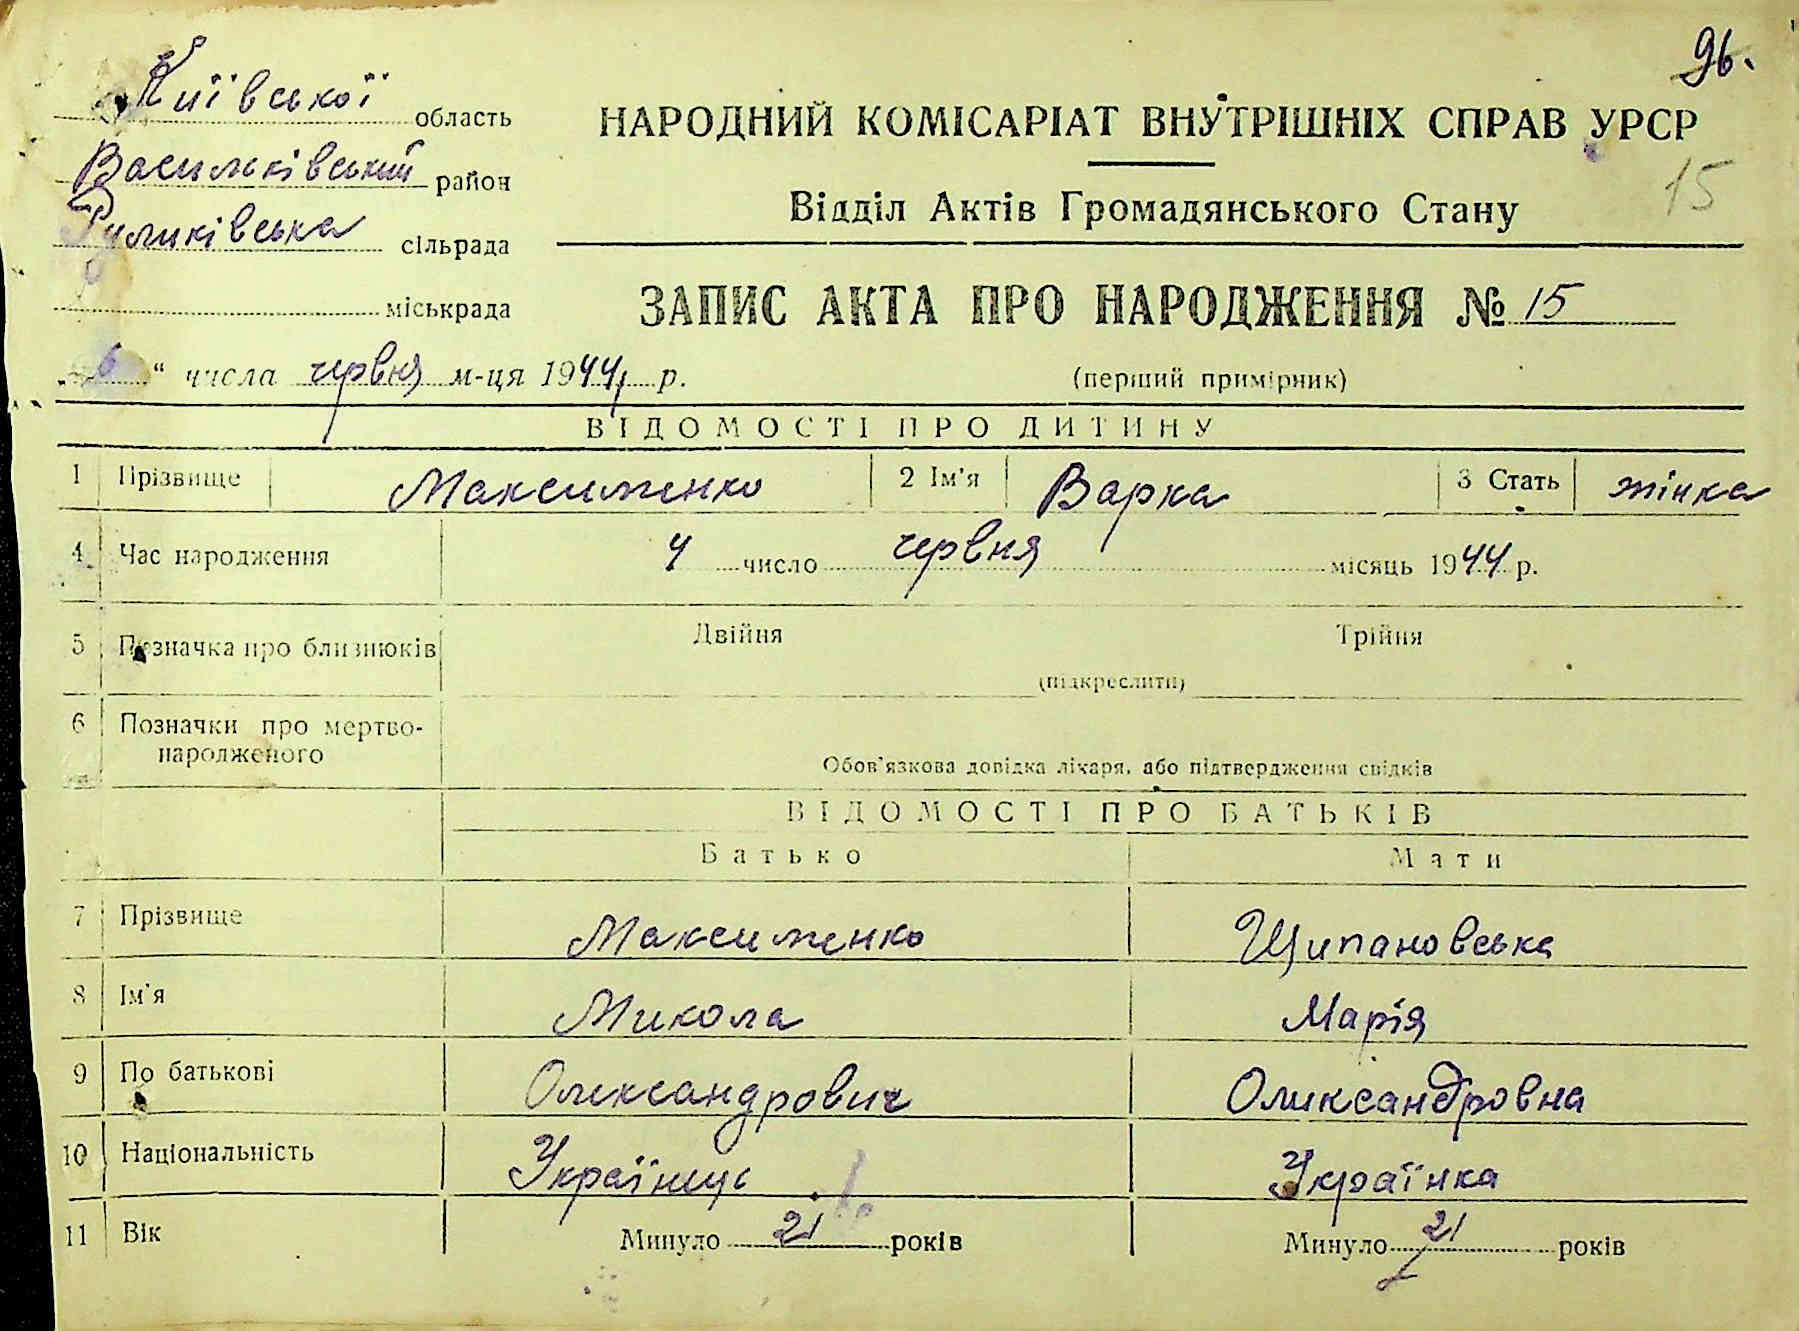 96.
Київської область
Васильківський район
Руликівська сільрада
міськрада
„6“ числа червня м-ця 1944 р.
НАРОДНИЙ КОМІСАРІАТ ВНУТРІШНІХ СПРАВ УРСР
Відділ Актів Громадянського Стану
15
ЗАПИС АКТА ПРО НАРОДЖЕННЯ № 15
(перший примірник)
ВІДОМОСТІ ПРО ДИТИНУ
1 Прізвище Максименко 2 Ім'я Варка 3 Стать жінка
4 Час народження 4 число червня місяць 1944 р.
5 Позначка про близнюків Двійня Трійня
(підкреслити)
6 Позначки про мертво-
народженого
Обов'язкова довідка лікаря, або підтвердження свідків
ВІДОМОСТІ ПРО БАТЬКІВ
Батько Мати
7 Прізвище Максименко Щипановська
8 Ім'я Микола Марія
9 По батькові Олександрович Олександровна
10 Національність Українець Українка
11 Вік Минуло 21 років Минуло 21 років